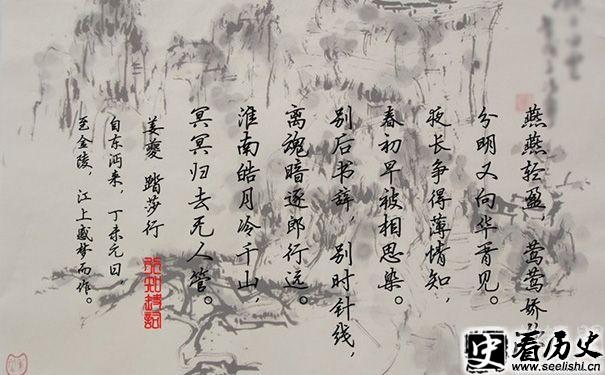 燕燕轻盈，莺莺娇
分明又向华胥见。
夜长争得薄情知，
春初早被相思染。
别后书辞，别时针线，
离魂暗逐郎行远。
淮南皓月冷千山，
冥冥归去无人管。
姜夔 踏莎行
自东沔来，丁未元日，
至金陵，江上感梦而作。
史 看历史
www.seelishi.cn